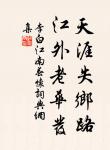 天涯失鄉路
江外老華髮
李白江南春懷詞典網
集